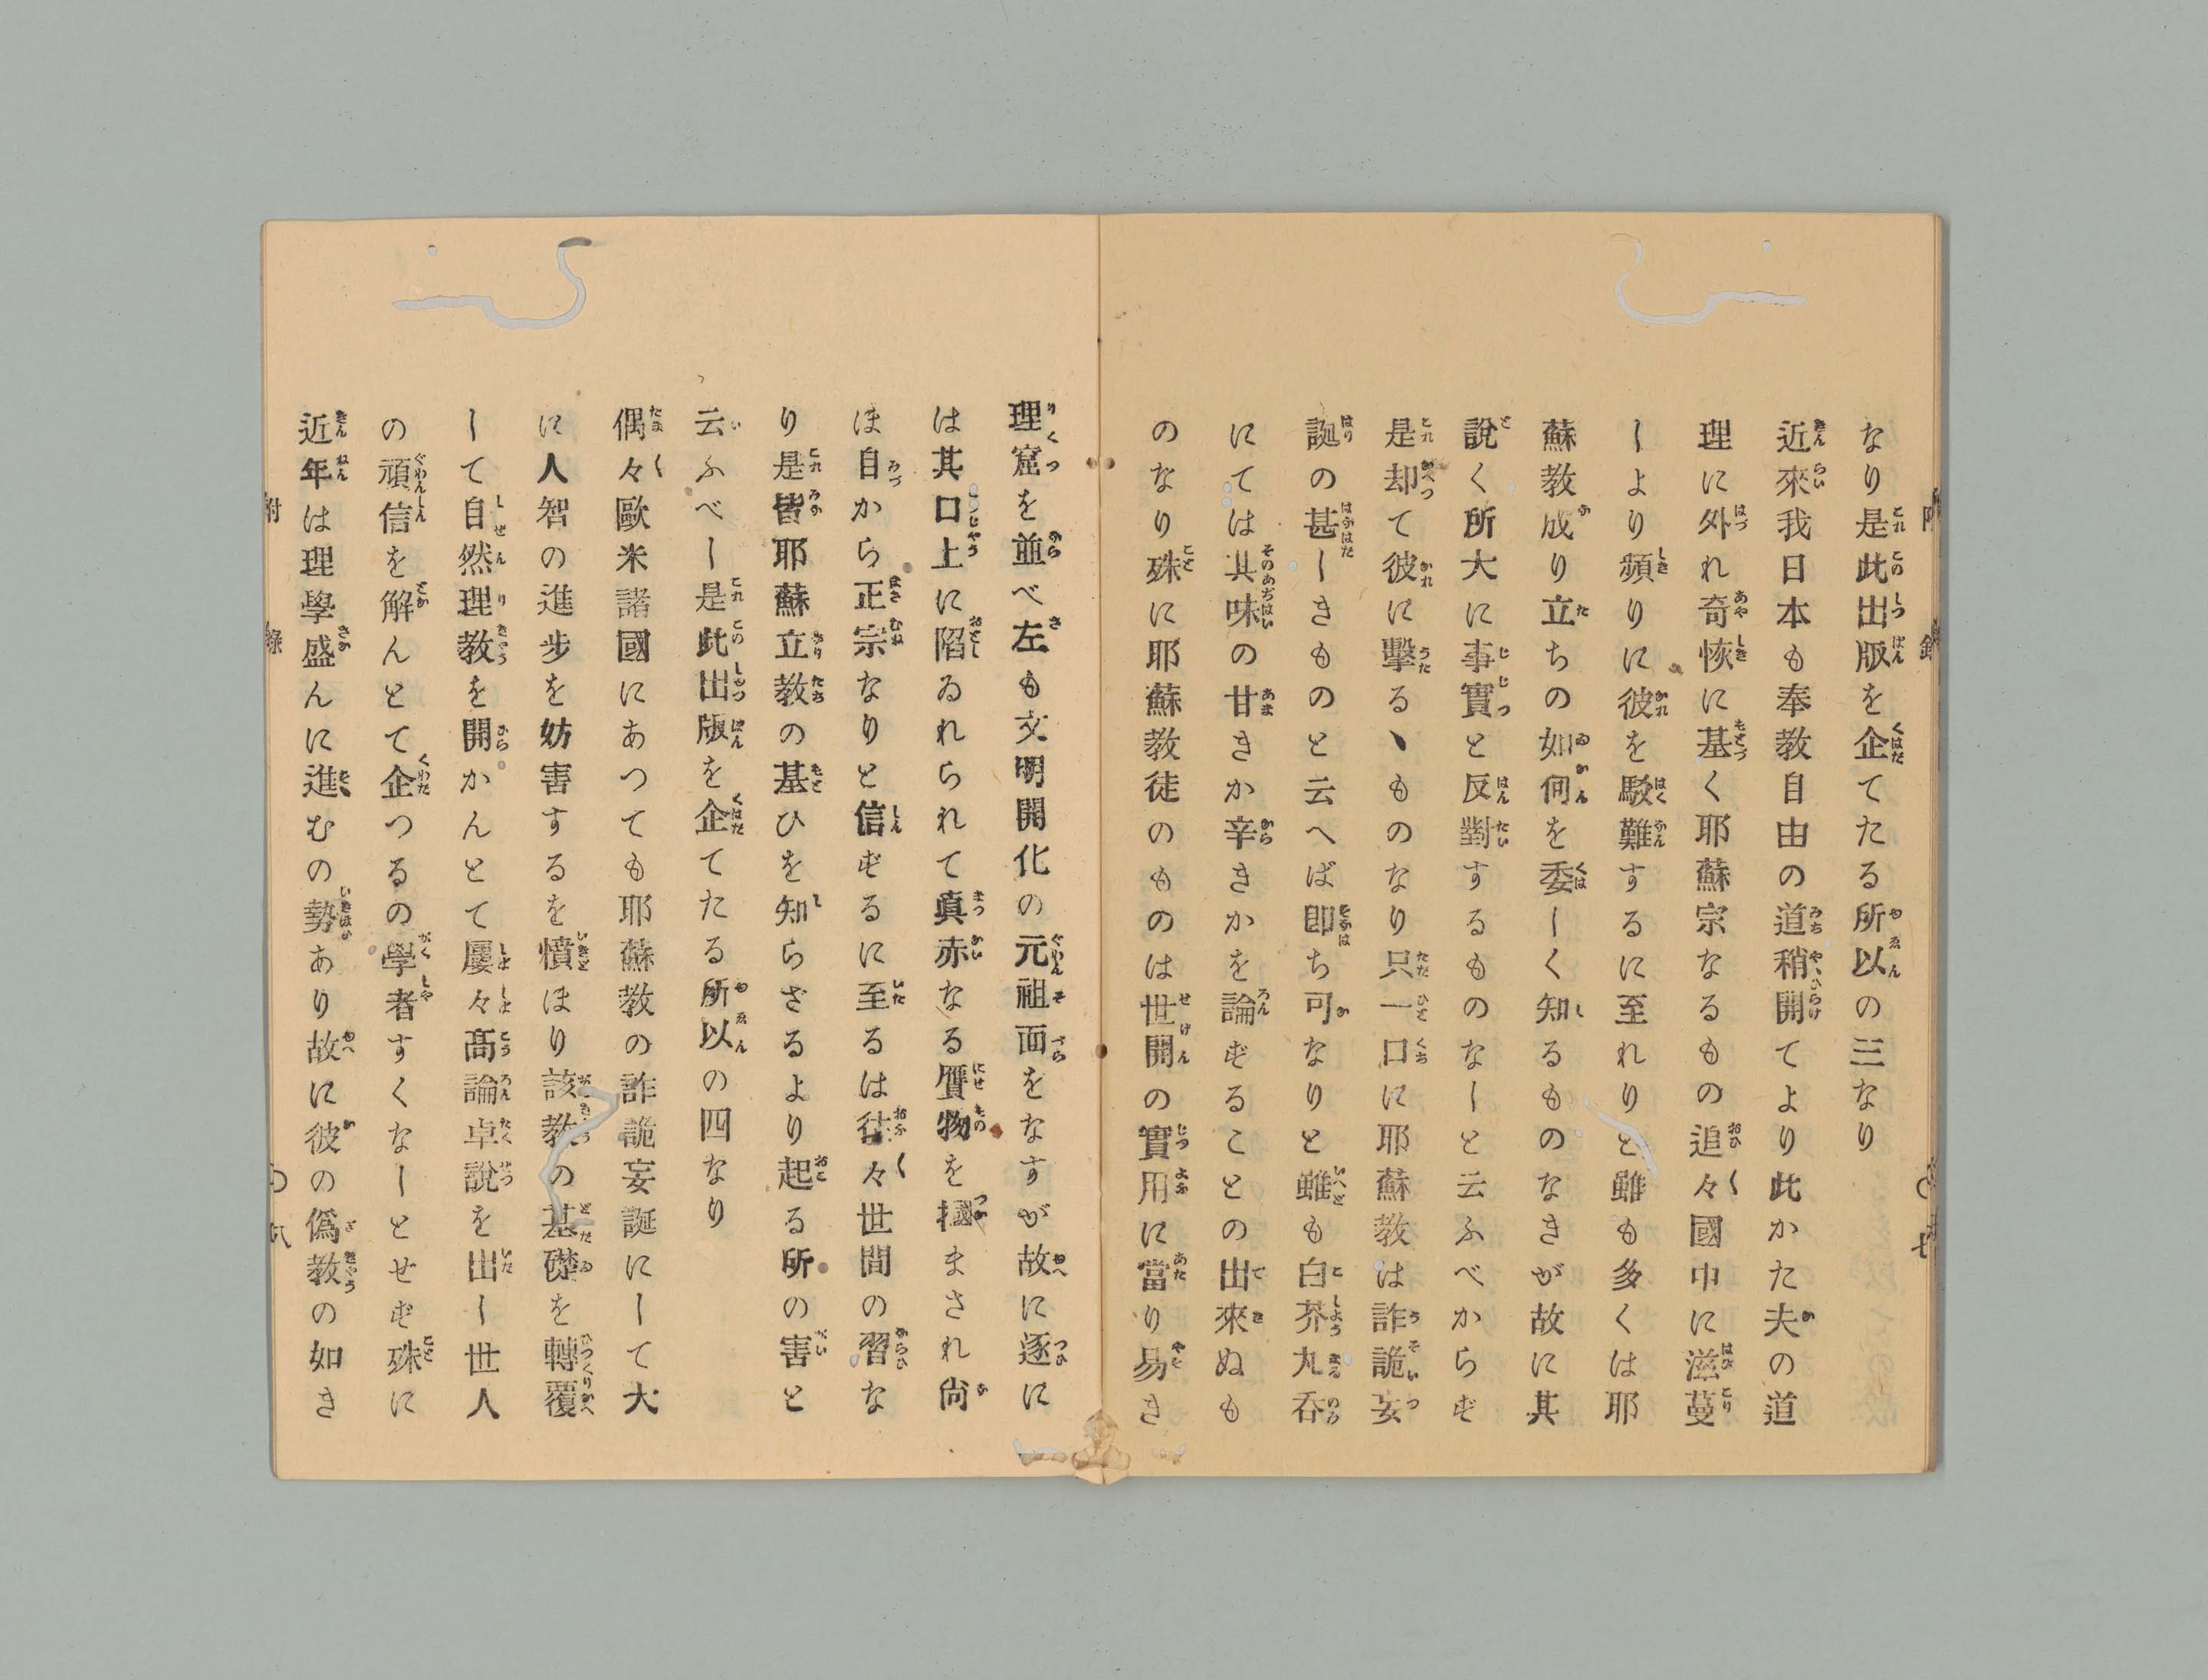 なり是此出版を企てたる所以の三なり
近來我日本も奉教自由の道稍開てより此かた夫の道
理に外れ奇恠に基く耶蘇宗なるもの追々國中に滋蔓
しより頻りに彼を駁難するに至れりと雖も多くは耶
蘇教成り立ちの如何を委しく知るものなきが故に其
說く所大に事實と反對するものなしと云ふべからず
是却て彼に擊るゝものなり只一口に耶蘇教は詐詭妄
誕の甚しきものと云へば即ち可なりと雖も白芥丸呑
にては其味の甘きか辛きかを論ずることの出來ぬも
のなり殊に耶蘇教徒のものは世開の實用に當り易き
理窟を並べ左も文明開化の元祖面をなすが故に逐に
は其口上に陷ゐれられて真赤なる贋物を摑まされ尙
ほ自から正宗なりと信ずるに至るは徃々世間の習な
り是皆耶蘇立教の基ひを知らざるより起る所の害と
云ふべし是此出版を企てたる所以の四なり
偶々歐米諸國にあつても耶蘇教の詐詭妄誕にして大
に人智の進步を妨害するを憤ほり該教の基礎を轉覆
して自然理教を開かんとて屢々高論卓說を出し世人
の頑信を解んとて企つるの學者すくなしとせず殊に
近年は理學盛んに進むの勢あり故に彼の僞教の如き
附錄
〇八